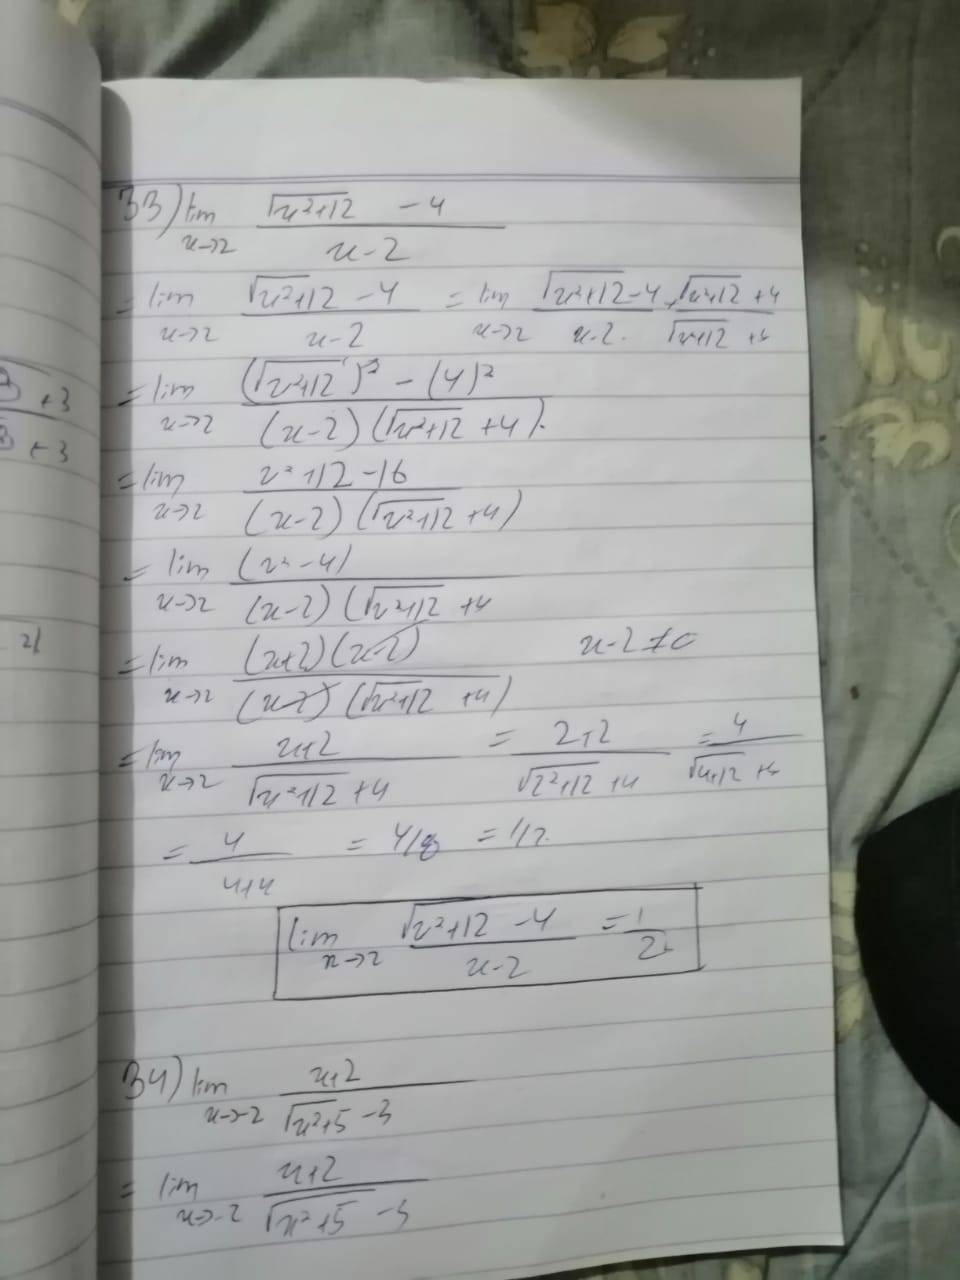 3 +3
3 +3
21
33) lim x→2 (√(x²+12) - 4)/(x-2)
= lim x→2 (√(x²+12) - 4)/(x-2) = lim x→2 (√(x²+12) - 4)/(x-2) × (√(x²+12) + 4)/(√(x²+12) + 4)
= lim x→2 ((√(x²+12))² - (4)²)/((x-2)(√(x²+12) + 4))
= lim x→2 (x²+12-16)/((x-2)(√(x²+12) + 4))
= lim x→2 (x²-4)/((x-2)(√(x²+12) + 4
= lim x→2 ((x+2)(x-2))/((x-2)(√(x²+12) + 4)) x-2≠0
= lim x→2 (x+2)/(√(x²+12) + 4) = (2+2)/(√(2²+12) + 4) = 4/(√(4+12) + 4)
= 4/(4+4) = 4/8 = 1/2.
lim x→2 (√(x²+12) - 4)/(x-2) = 1/2
34) lim x→-2 (x+2)/(√(x²+5) - 3)
= lim x→-2 (x+2)/(√(x²+5) - 3)